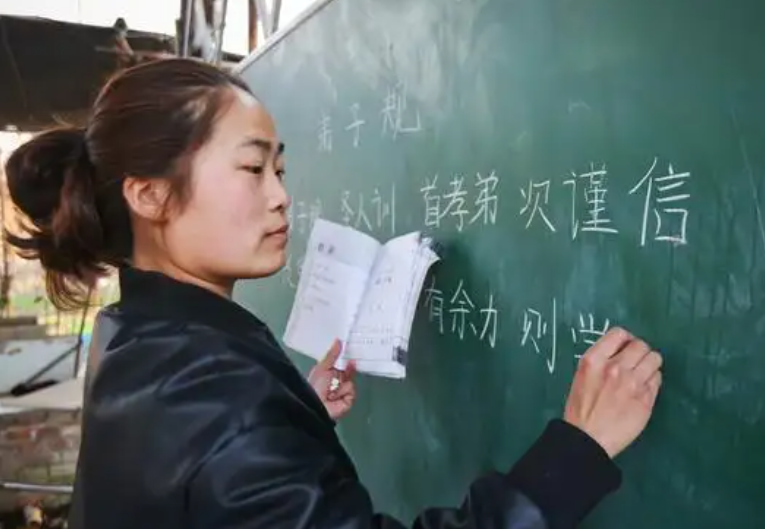 弟子规
子规 圣人训 首孝弟 次谨信
有余力 则学